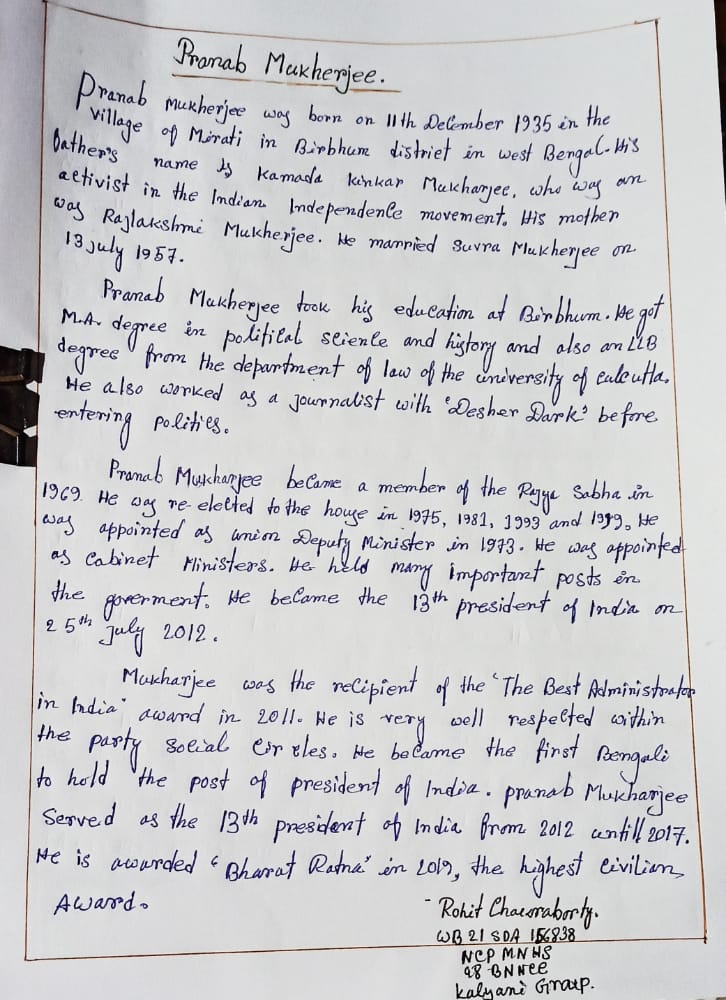 Pranab Mukherjee.
Pranab Mukherjee was born on 11th December 1935 in the
village of Mirati in Birbhum district in west Bengal. His
father's name is Kamada Kinkar Mukharjee, who was an
activist in the Indian Independence movement. His mother
was Rajlakshmi Mukherjee. He married Suvra Mukherjee on
13 july 1957.
Pranab Mukherjee took his education at Birbhum. He got
M.A. degree in political science and history and also an LLB
degree from the department of law of the university of calcutta.
He also worked as a journalist with 'Desher Dark' before
entering politics.
Pranab Mukharjee became a member of the Rajya Sabha in
1969. He was re-elected to the house in 1975, 1981, 1993 and 1999. He
was appointed as union Deputy Minister in 1973. He was appointed
as Cabinet Ministers. He held many important posts in
the goverment. He became the 13th president of India on
25th july 2012.
Mukharjee was the recipient of the 'The Best Administrator
in India' award in 2011. He is very well respected within
the party social circles. He became the first Bengali
to hold the post of president of India. pranab Mukharjee
Served as the 13th president of India from 2012 untill 2017.
He is awarded 'Bharat Ratna' in 2019, the highest civilian
Award.
- Rohit Chacraborty.
WB 21 SDA 156838
NCP MNHS
48 BN NCC
Kalyani Group.